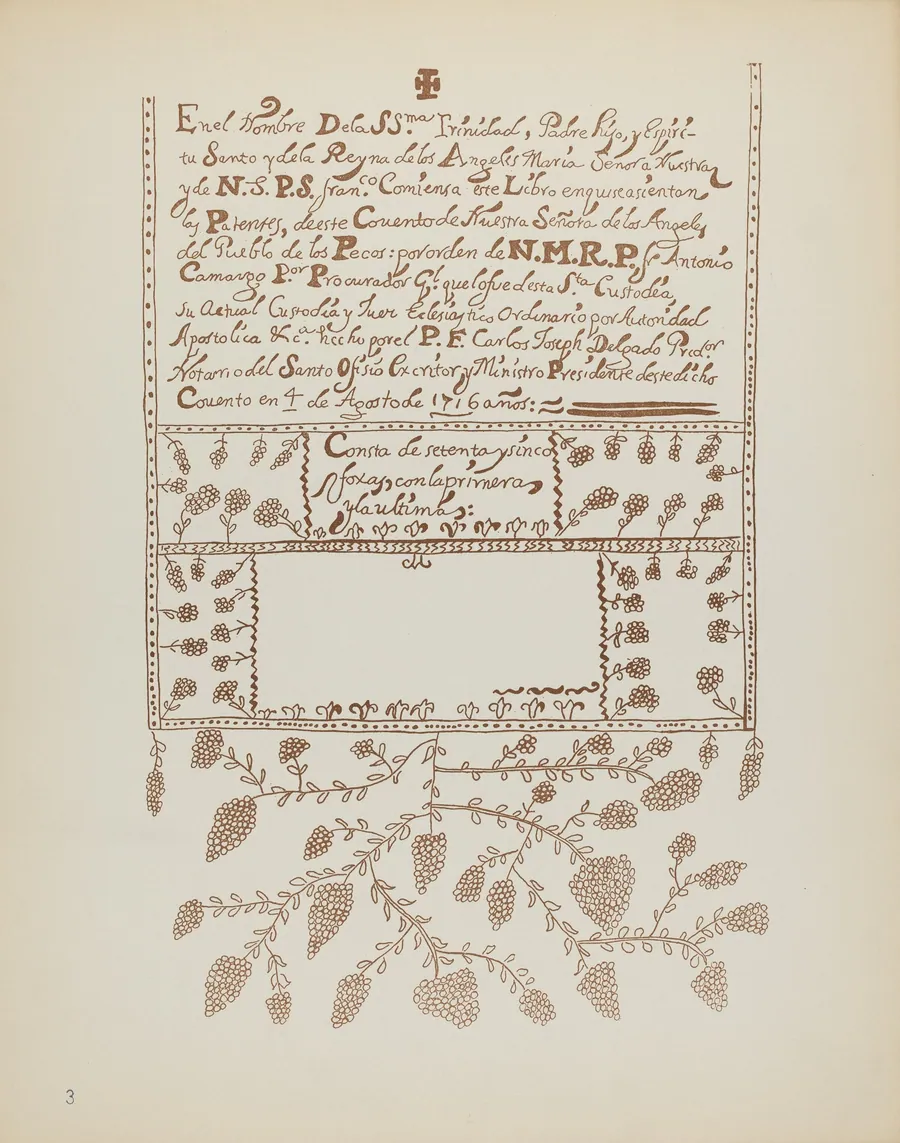 En el Nombre De la SS.ma Trinidad, Padre hijo, y Espiri-
tu Santo y de la Reyna de los Angeles Maria Señora Nuestra
y de N.S. P.S. fran.co Comiensa este Libro en que se asientan
las Patentes, de este Covento de Nuestra Señora de los Angeles
del Pueblo de los Pecos: por orden de N.M.R.P. fr Antonio
Camargo P.or Procurador Gl. que lo fue desta S.ta Custodia,
Su Actual Custodia y Juez Eclesiastico Ordinario por Autoridad
Apostolica &c.a hecho por el P. F. Carlos Joseph Delgado Pred.or
Notario del Santo Ofisio Excritor y Ministro Presidente deste dicho
Covento en 4 de Agosto de 1716 años:
Consta de setenta y sinco
foxas, con la primera
y la ultima:
3